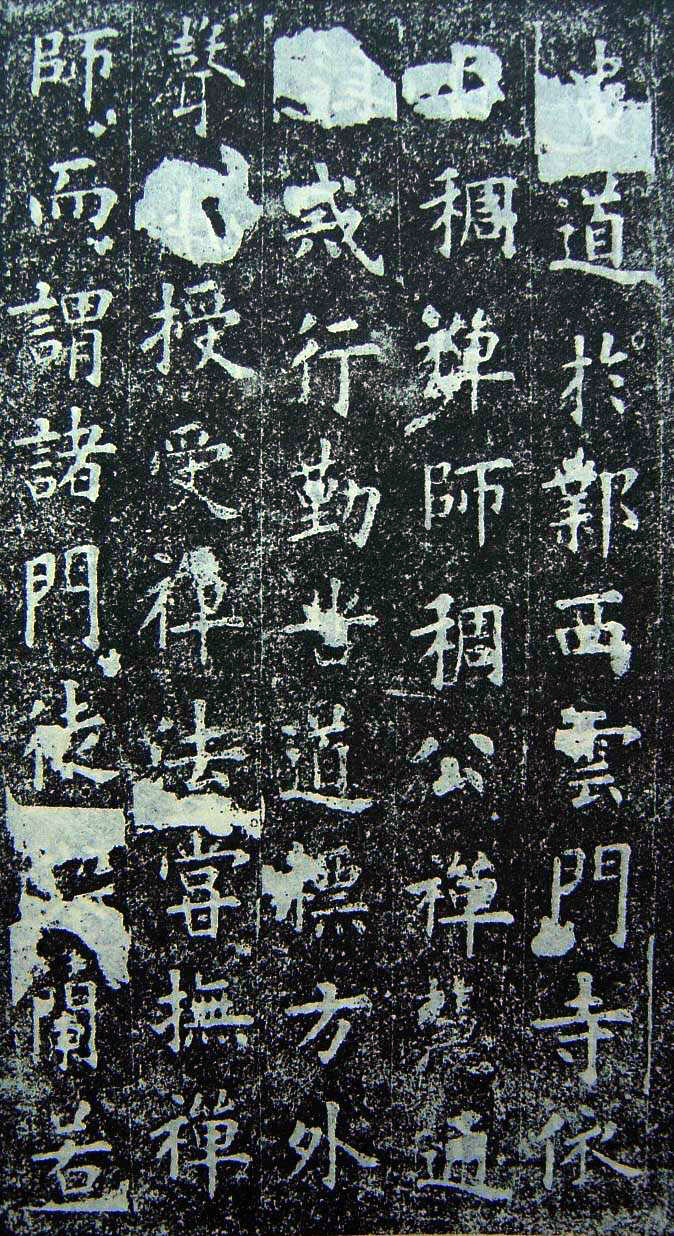 道於鄴西雲門寺依
稠禪師稠公禪慧通
惑行勤世道標方外
聲授受禪法嘗撫禪
師而謂諸門徒蘭若